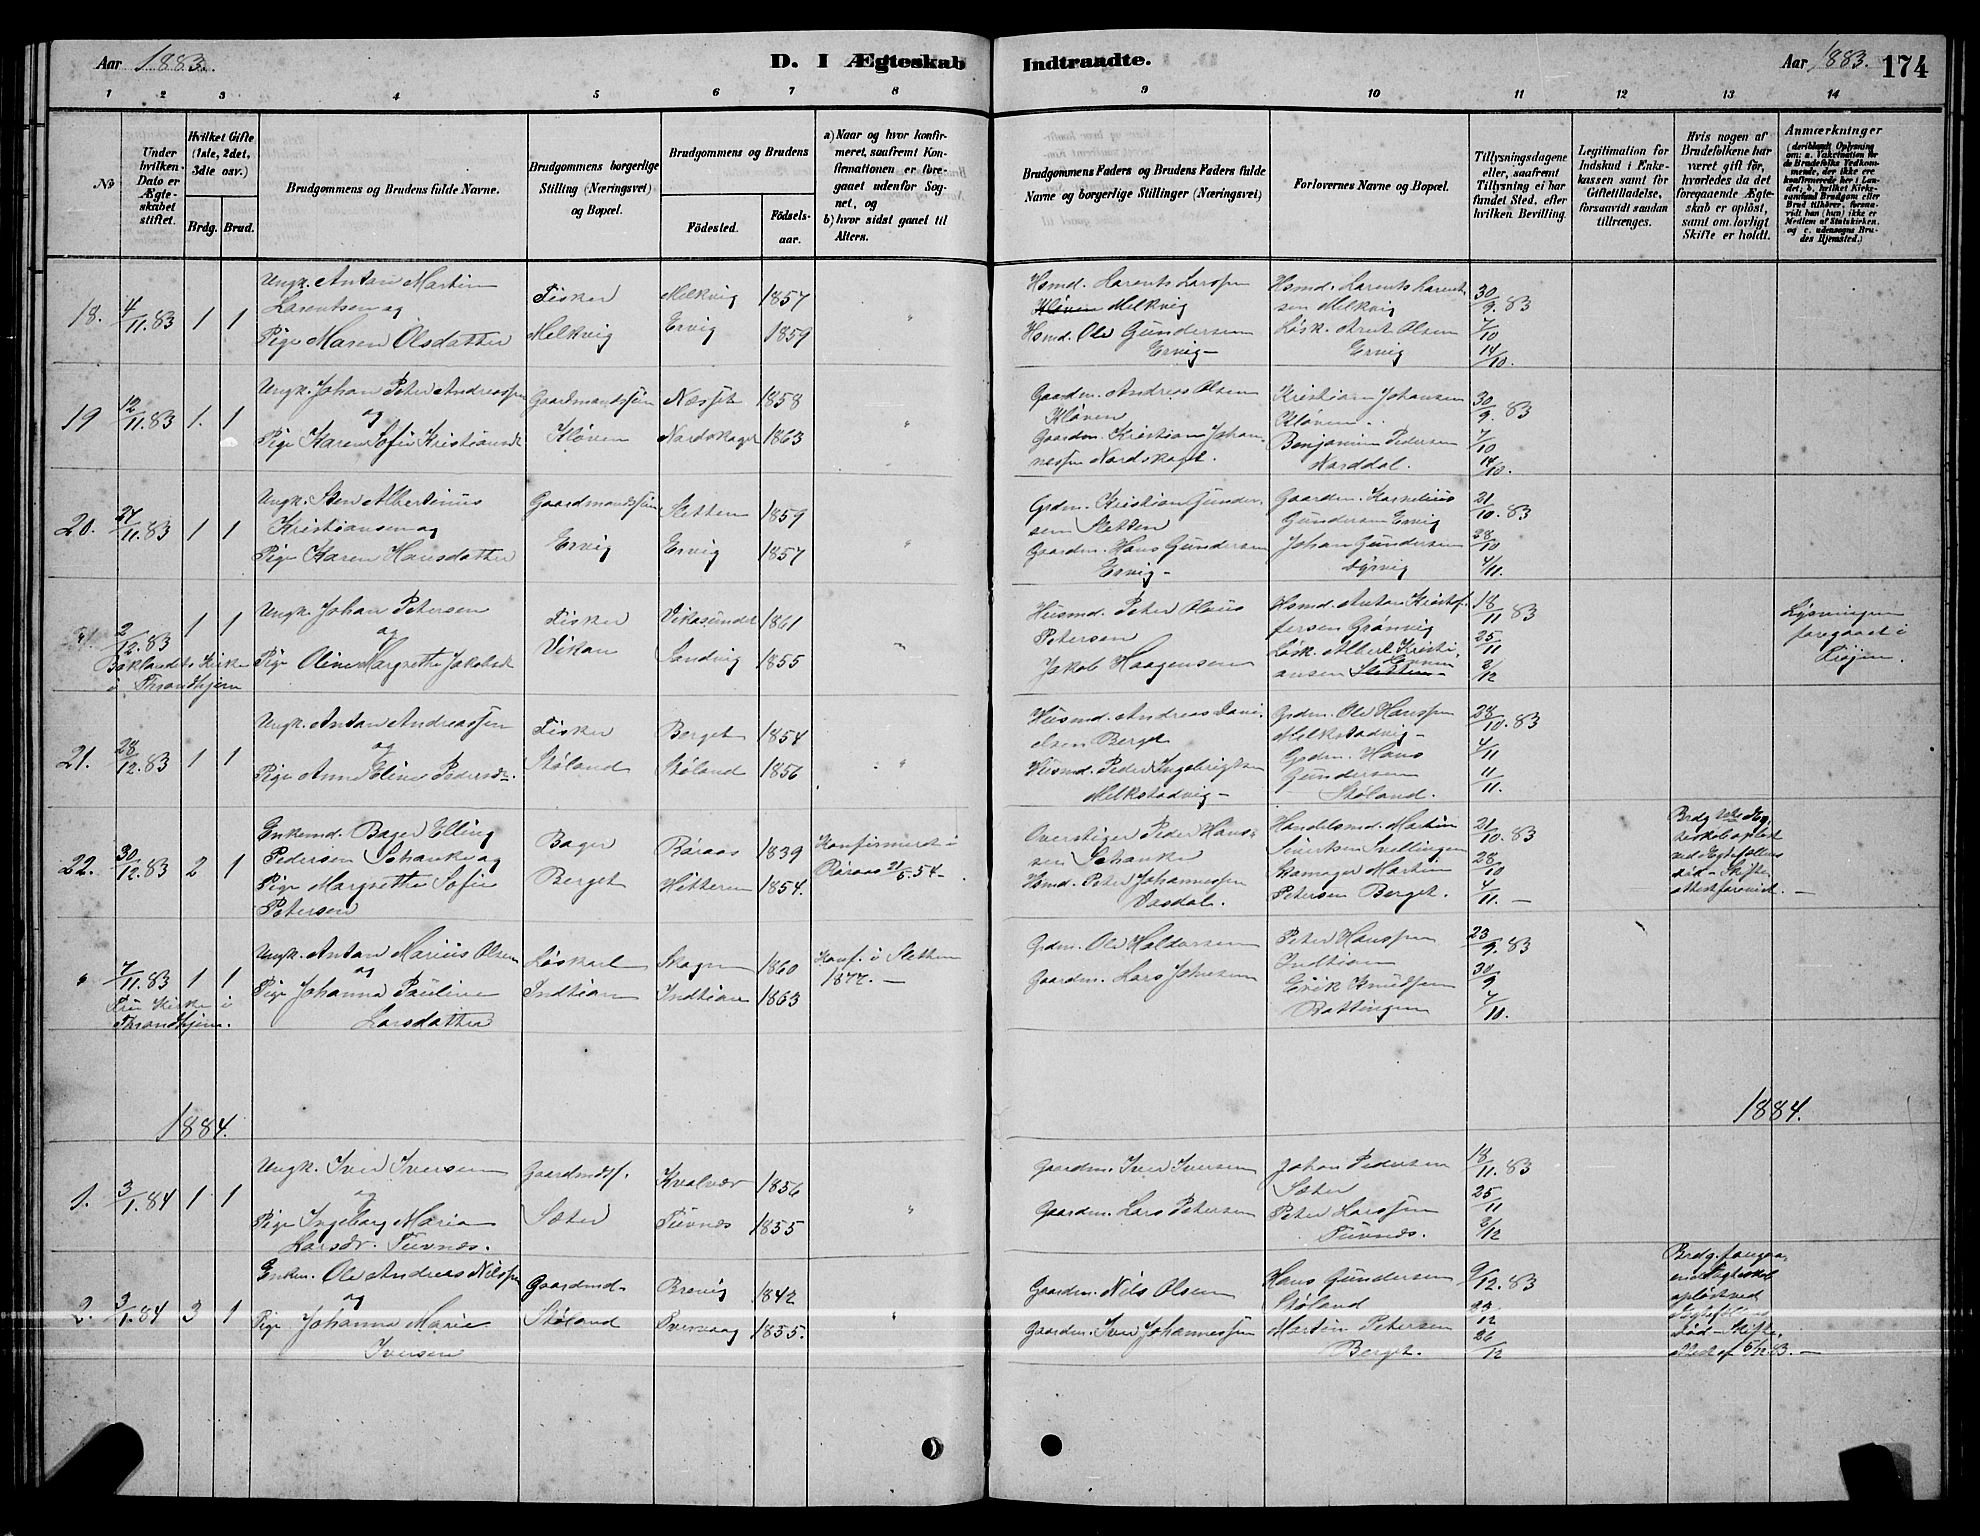 Aar 1883.
D. I Ægteskab Indtraadte.
Aar 1883. 174
1 2 3 4 5 6 7 8 9 10 11 12 13 14
No
Under hvilken Dato er Ægteskabet stiftet.
Hvilket Gifte (1ste, 2det, 3die osv.)
Brdg. Brud.
Brudgommens og Brudens fulde Navne.
Brudgommens borgerlige Stilling (Næringsvei) og Bopæl.
Brudgommens og Brudens
Fødested.
Fødselsaar.
a) Naar og hvor konfirmeret, saafremt Konfirmationen er foregaaet udenfor Sognet, og
b) hvor sidst gaaet til Alters.
Brudgommens Faders og Brudens Faders fulde Navne og borgerlige Stillinger (Næringsvei)
Forlovernes Navne og Bopæl.
Tillysningsdagene eller, saafremt Tillysning ei har fundet Sted, efter hvilken Bevilling.
Legitimation for Indskud i Enkekassen samt for Giftetilladelse, forsaavidt saadan tiltrænges.
Hvis nogen af Brudefolkene har været gift før, hvorledes da det foregaaende Ægteskab er opløst, samt om lovligt Skifte er holdt.
Anmærkninger
(deriblandt Oplysning om: a. Vakcination for de Brudefolks Vedkommende, der ikke ere konfirmerede her i Landet; b. hvilket Kirkesamfund Brudgom eller Brud tilhører, forsaavidt han (hun) ikke er Medlem af Statskirken, og c. udensogns Brudes Hjemsted.)
18. 4/11.83 1 1
Ungk. Anton Martin
Larentsen og
Pige Maren Olsdatter
Fisker
Melkvig
Melkvig 1857
Ervig 1859
"
Hsmd. Larents Larssen
Kløven Melkvig
Hsmd. Ole Gundersen
Ervig -
Hsmd. Larents Larent-
sen Melkvig
Løsk. Arnt Olsen
Ervig
30/9.83
7/10
14/10.
19 12/11.83 1. 1
Ungk. Johan Peter Andreassen
og
Pige Karen Sofie Kristiansdt
Gaardmandssøn
Kløven
Næsset 1858
Nordskaget 1863
"
Gaardm. Andreas Olsen
Kløven
Gaardm. Kristian Johan-
nessen Nordskaget.
Kristian Johansen
Kløven.
Benjamin Pedersen
Norddal.
30/9 83
7/10
14/10.
20. 27/11.83 1 1
Ungk. Sten Albertinius
Kristiansen og
Pige Karen Hansdatter
Gaardmandssøn
Ervig
Sletten 1859
Ervig 1857
"
Grdm. Kristian Gunder-
sen Sletten
Gaardm. Hans Gundersen
Ervig -
Gaardm. Kornelius
Gundersen Ervig
Johan Gundersen
Dyrvig
21/10.83
28/10
4/11.
2/12.83 1 1
Baklandets Kirke
i Throndhjem
Ungk. Johan Petersen
og
Pige Oline Margrethe Jakobsdt
Fisker
Vikan
Vikasundet 1861
Sandvig 1855
"
Husmd. Peter Olaus
Petersen
Jakob Haagensen
Hsmd. Anton Kristof-
fersen Grønvig
Løsk. Albert Kristi-
ansen Sletten
18/11 83
25/11
2/12
Lysningen
foregaaet i
21. 28/12.83 1 1
Ungk. Anton Andreassen
og
Pige Anne Eline Pedersdr.
Fisker
Støland
Berget 1854
Støland 1856
"
Husmd. Andreas Dani-
elsen Berget
Husmd. Peder Ingebrigtsen
Melkstadvig -
Grdm. Ole Hanssen
Melkstadvig -
Grdm. Hans
Gundersen
Støland.
28/10.83
4/11
11/11.
22. 30/12.83 2 1
Enkemd. Bager Elling
Pedersen Schanke og
Pige Margrethe Sofie
Petersen
Bager
Berget
Røraas 1839
Hitteren 1854.
Konfirmeret i
Røraas 21/5.54 -
Overstiger Peder Hans-
sen Schanke
Hsmd. Peter Johannessen
Dasdal.
Handelsmd. Martin
Sivertsen Svellingen
Skomager Martin
Petersen Berget.
21/10.83
28/10
4/11. -
Brdg 1ste Æg-
teskab opløst
ved Egtefællens
død - Skifte-
attest forevist. -
" 7/11.83 1 1
Frue Kirke i
Throndhjem.
Ungk. Anton Marius Olsen
og
Pige Johanna Pauline
Larsdatter
Løskarl
Indtian
Skagen 1860
Indtian 1863
Konf. i Sletten
1877. -
Grdm. Ole Haldorsen
Gaardm. Lars Johnsen
Peter Hanssen
Indtian
Erik Knudsen
Rottingen
23/9.83
30/9
7/10.
1884.
1884.
1. 3/1.84 1 1
Ungk. Iver Iversen
og
Pige Ingeborg Maria
Larsdr. Tuvnes.
Gaardmdsf.
Sæter
Kvalvær 1856
Tuvnes 1855
"
Gaardm. Iver Iversen
Gaardm. Lars Petersen
Johan Pedersen
Sæter
Peter Larssen
Tuvnes.
18/11.83
25/11
2/12
2. 3/1.84 3 1
Enkm. Ole Andreas Nilssen
og
Pige Johanna Marie
Iversen
Gaardmd.
Støland
Brevig 1842
1855.
"
Gaardm. Nils Olsen
Gaardm. Iver Johannessen
Hans Gundersen
Støland
Martin Petersen
Berget.
9/12.83
23/12
26/12
Brdg. foregaa-
ende Ægteskab
opløst ved
Ægtefællens
død - Skifte-
attest af 5/12 83. -